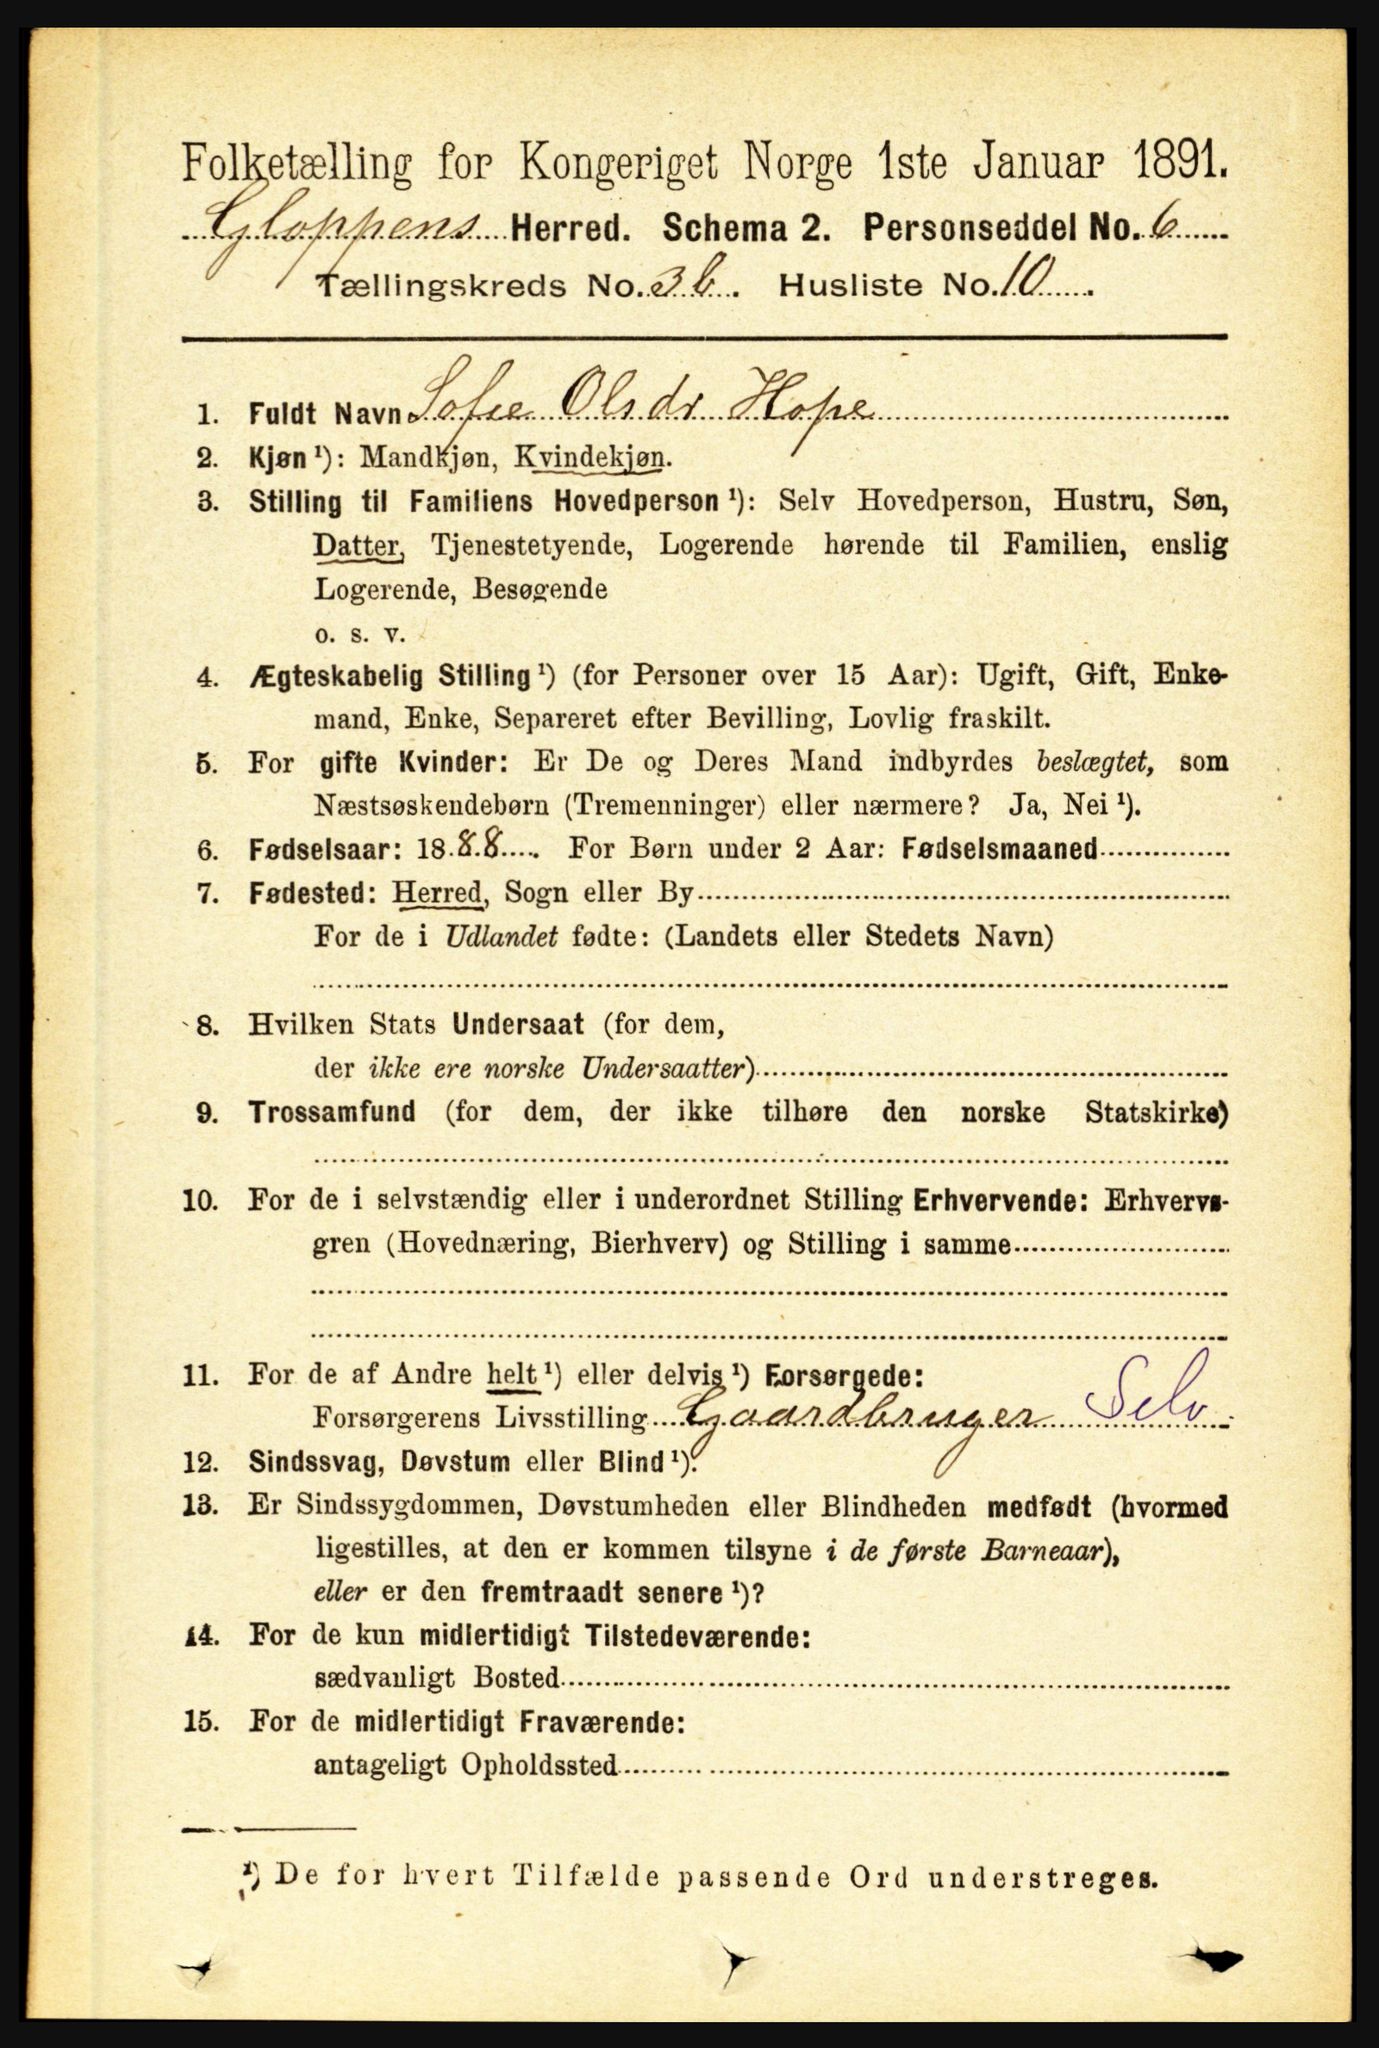 Folketælling for Kongeriget Norge 1ste Januar 1891.
Gloppens Herred. Schema 2. Personseddel No. 6
Tællingskreds No. 3b. Husliste No. 10.
1. Fuldt Navn Sofie Olsdr Hope
2. Kjøn ¹): Mandkjøn, Kvindekjøn.
3. Stilling til Familiens Hovedperson ¹): Selv Hovedperson, Hustru, Søn,
Datter, Tjenestetyende, Logerende hørende til Familien, enslig
Logerende, Besøgende
o. s. v.
4. Ægteskabelig Stilling ¹) (for Personer over 15 Aar): Ugift, Gift, Enke-
mand, Enke, Separeret efter Bevilling, Lovlig fraskilt.
5. For gifte Kvinder: Er De og Deres Mand indbyrdes beslægtet, som
Næstsøskendebørn (Tremenninger) eller nærmere? Ja, Nei ¹).
6. Fødselsaar: 1888. For Børn under 2 Aar: Fødselsmaaned
7. Fødested: Herred, Sogn eller By
For de i Udlandet fødte: (Landets eller Stedets Navn)
8. Hvilken Stats Undersaat (for dem,
der ikke ere norske Undersaatter)
9. Trossamfund (for dem, der ikke tilhøre den norske Statskirke)
10. For de i selvstændig eller i underordnet Stilling Erhvervende: Erhvervs-
gren (Hovednæring, Bierhverv) og Stilling i samme
11. For de af Andre helt ¹) eller delvis ¹) Forsørgede:
Forsørgerens Livsstilling Gaardbruger Selv
12. Sindssvag, Døvstum eller Blind ¹).
13. Er Sindssygdommen, Døvstumheden eller Blindheden medfødt (hvormed
ligestilles, at den er kommen tilsyne i de første Barneaar),
eller er den fremtraadt senere ¹)?
14. For de kun midlertidigt Tilstedeværende:
sædvanligt Bosted
15. For de midlertidigt Fraværende:
antageligt Opholdssted
¹) De for hvert Tilfælde passende Ord understreges.